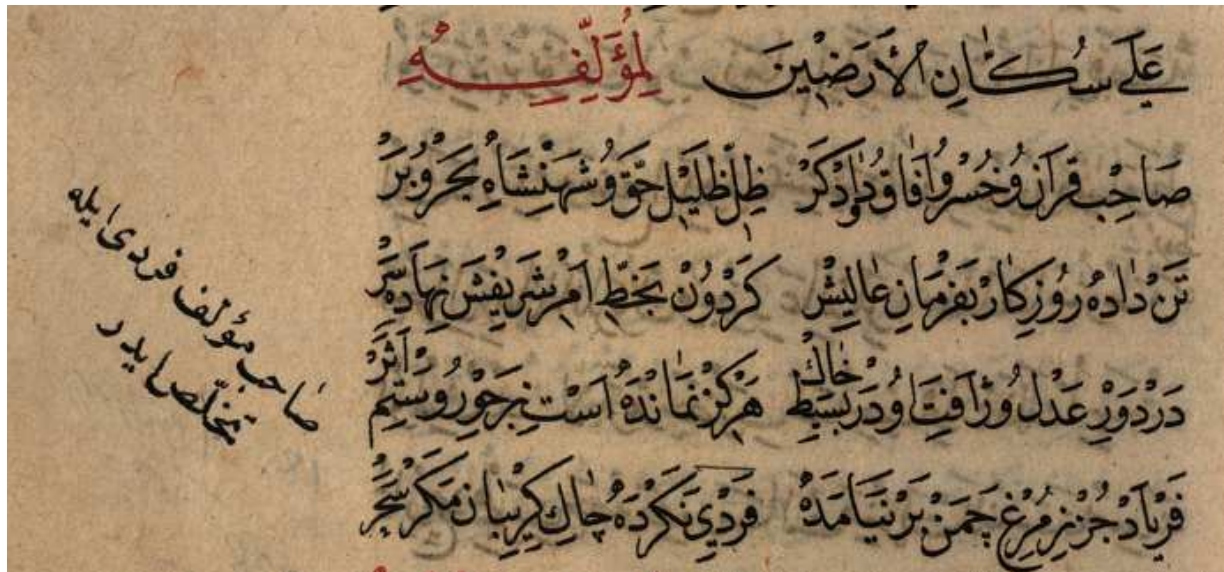 عَلَى سُكَّانِ الْأَرَضِينَ لِمُؤَلِّفِهِ
صَاحِب قِرَان وُ خُسْرُو آفَاق وُ دَادكَرْ ظِلِّ ظَلِيلِ حَقّ وُ شَهَنْشَاهِ بَحْر وُ بَرْ
تَنْ دَادَهْ رُوزكَارْ بَفَرْمَانِ عَالِيشْ كَرْدُونْ بَخَطِّ اَمْرِ شَرِيفِشْ نِهَادَه سَرْ
دَرْ دَوْرِ عَدْل وُ رَأفَتِ اُو دَرْ بَسِيطِ خَاكْ هَرْكِزْ نَمَانْدَهْ اَسْت زِ جَوْر وُ سِتَمْ اَثَرْ
فَرْيَادْ جُزْ زِ مُرْغِ چَمَنْ بَرْ نَيَامَدَهْ فَرْدِي نَكَرْدَهْ چَاكِ كِرِيبَان مَكَرْ سَحَرْ
صاحب مؤلف فردی ایله
تخلّص ایدر